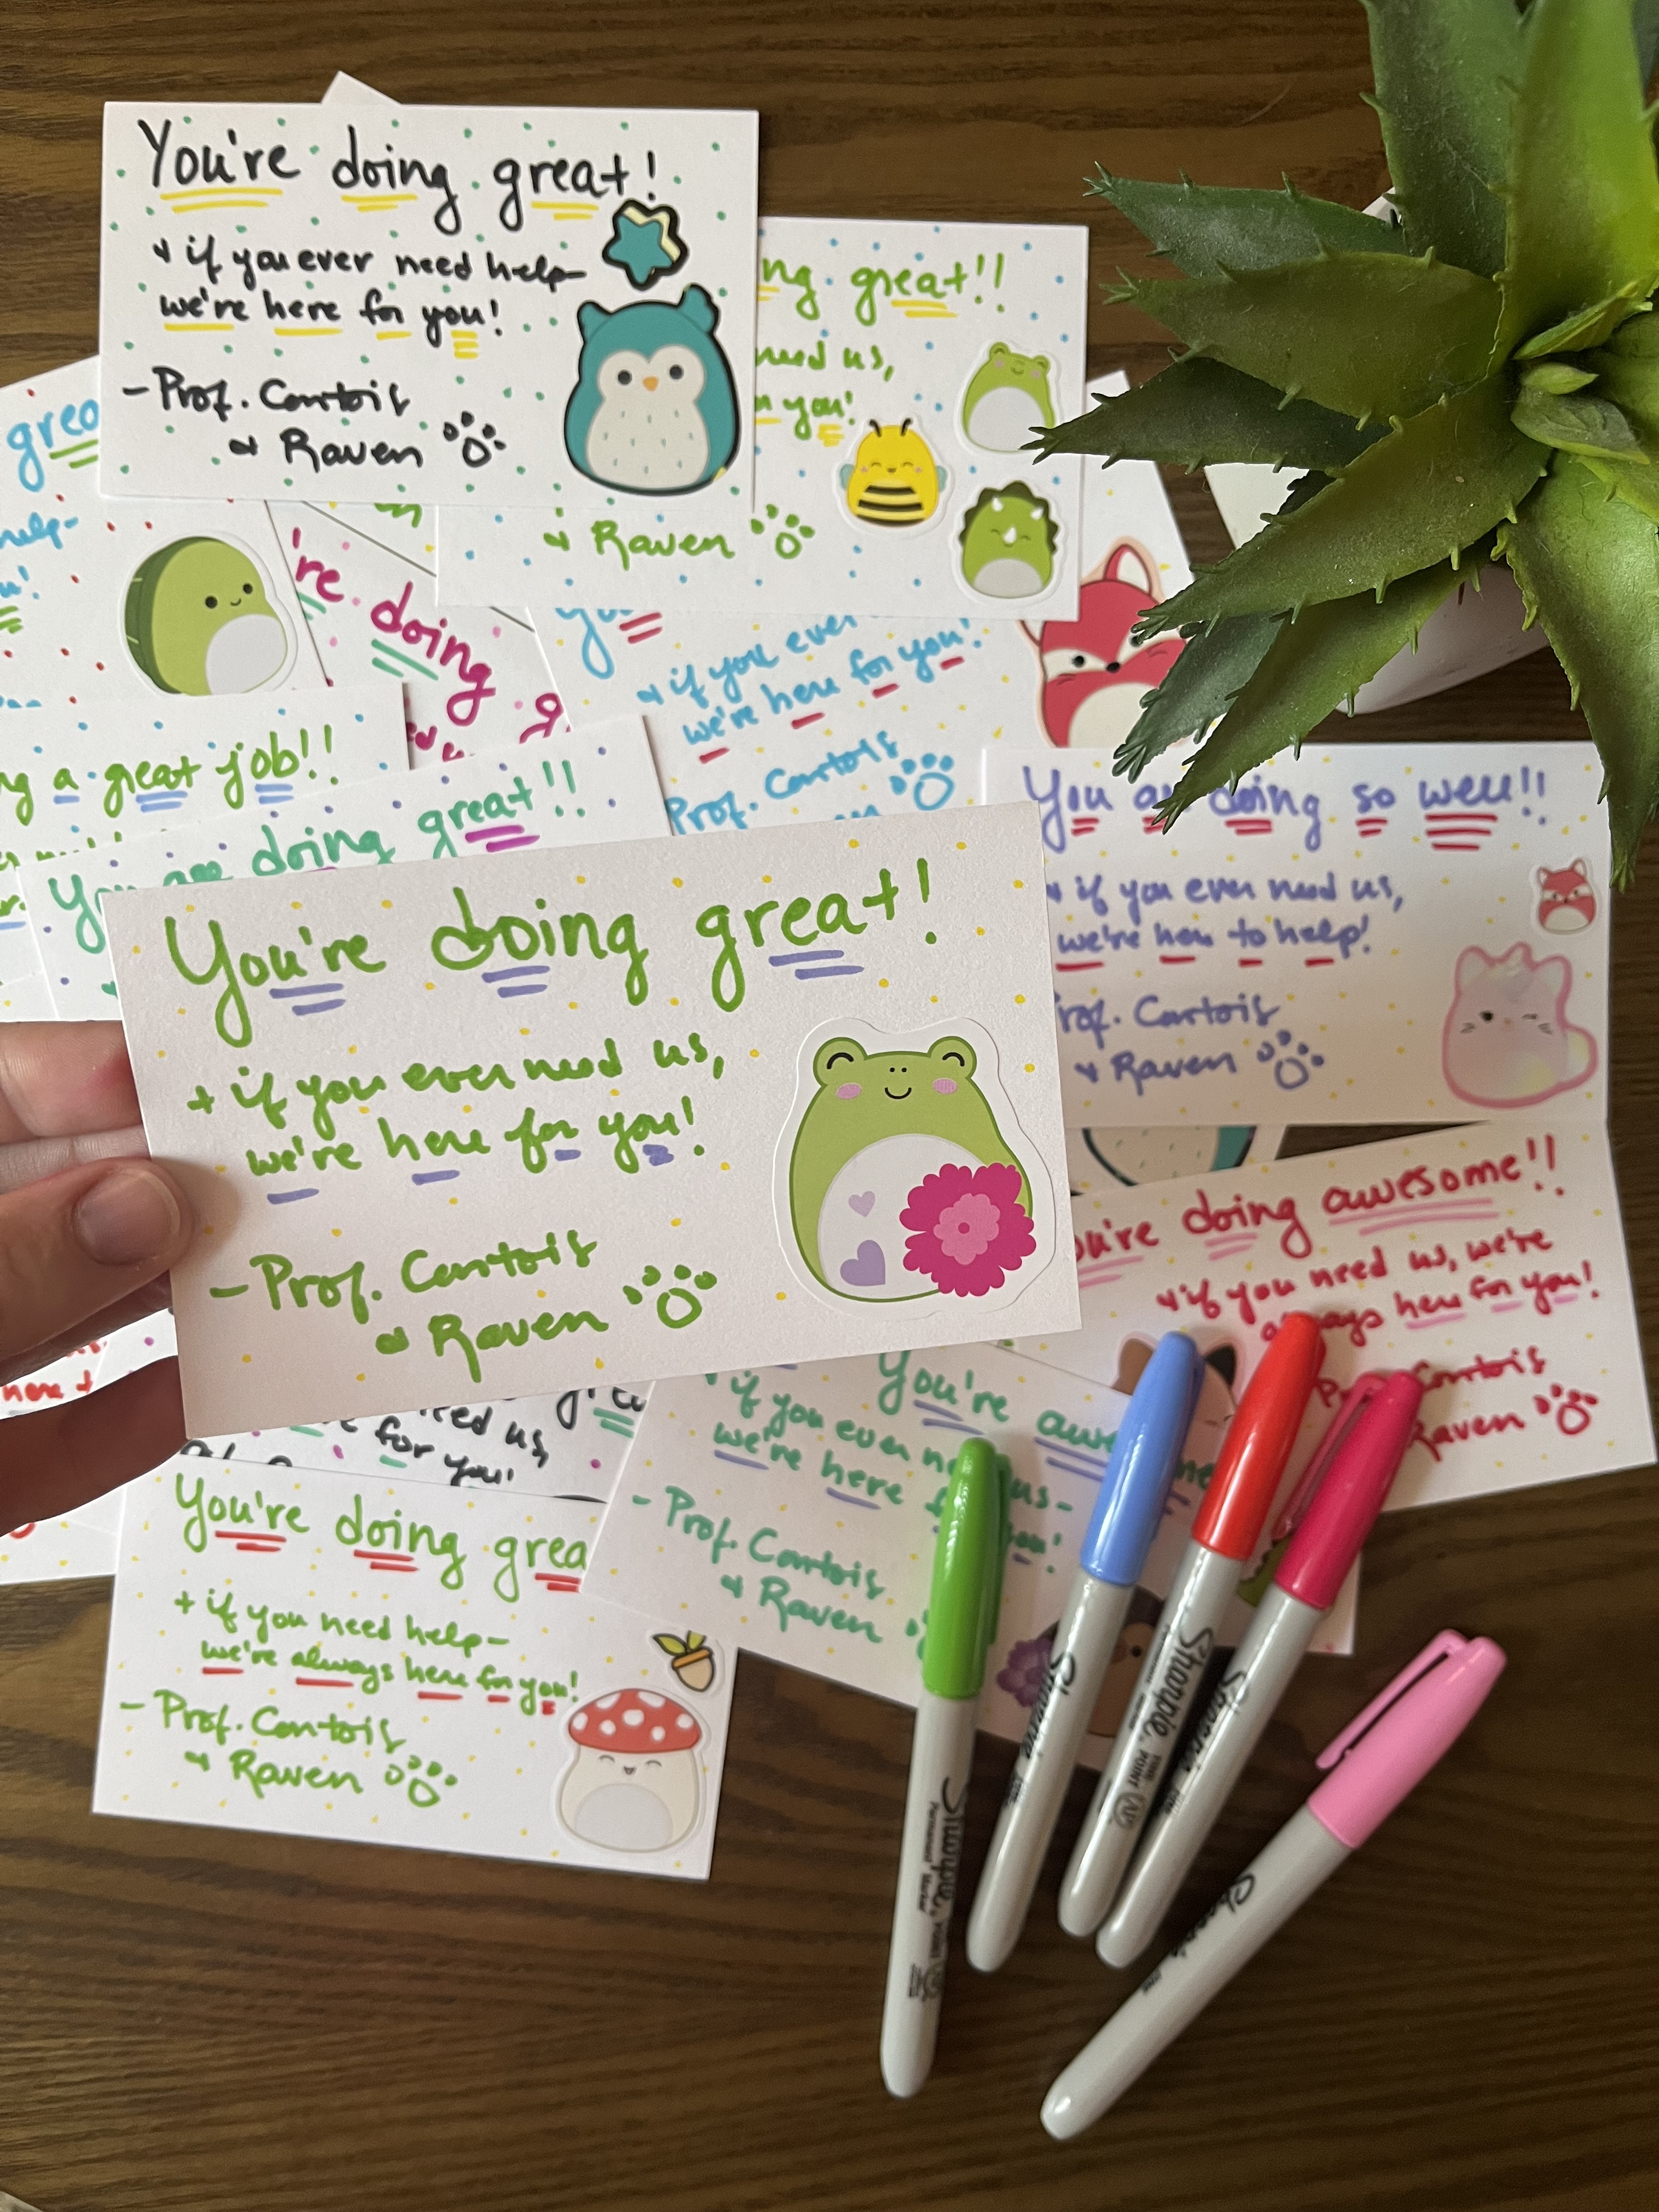 You're doing great!
+ if you ever need help-
we're here for you!
- Prof. Contois
+ Raven
ng great!!
need us,
you!
+ Raven
great
help-
u!
're doing
g
you
+ if you ever
we're here for you!
Prof. Contois
a great job!!
You are doing great!!
You are doing so well!!
+ if you ever need us,
we're here to help!
Prof. Contois
+ Raven
You're doing great!
+ if you ever need us,
we're here for you!
- Prof. Contois
+ Raven
ou're doing awesome!!
+ if you need us, we're
always here for you!
Contois
Raven
here +
need us,
for you!
You're
if you ever
us-
we're here
you!
- Prof. Contois
+ Raven
You're doing grea
+ if you need help-
we're always here for you!
- Prof. Contois
+ Raven
Sharpie
Permanent Marker
Sharpie
Sharpie
FINE POINT
Sharpie
Sharpie